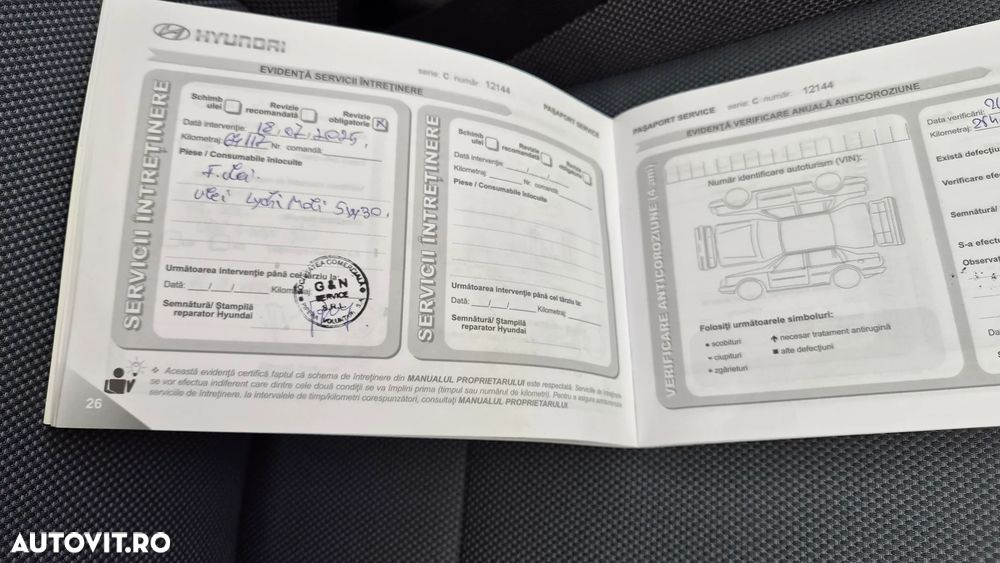 HYUNDAI
serie: C număr: 12144
EVIDENȚĂ SERVICII ÎNTREȚINERE
PAȘAPORT SERVICE
SERVICII ÎNTREȚINERE
Schimb ulei
Revizie recomandată
Revizie obligatorie
Dată intervenție: 18,07,2025,
Kilometraj: Nr. comandă:
Piese / Consumabile înlocuite
F. ulei.
ulei 5W30,
Următoarea intervenție până cel târziu la:
Dată: __/__/__ Kilometraj:
Semnătură/ Ștampilă
reparator Hyundai
SOCIETATEA COMERCIALĂ
G & N
SERVICE
S.R.L.
VOLUNTARI
SERVICII ÎNTREȚINERE
Schimb ulei
Revizie recomandată
Revizie obligatorie
Dată intervenție: __/__/__
Kilometraj: Nr. comandă:
Piese / Consumabile înlocuite
Următoarea intervenție până cel târziu la:
Dată: __/__/__ Kilometraj:
Semnătură/ Ștampilă
reparator Hyundai
Această evidență certifică faptul că schema de întreținere din MANUALUL PROPRIETARULUI este respectată. Serviciile de întreținere
se vor efectua indiferent care dintre cele două condiții se va împlini prima (timpul sau numărul de kilometri). Pentru a asigura
serviciile de întreținere, la intervalele de timp/kilometri corespunzători, consultați MANUALUL PROPRIETARULUI.
26
PAȘAPORT SERVICE serie: C număr: 12144
EVIDENȚĂ VERIFICARE ANUALĂ ANTICOROZIUNE
VERIFICARE ANTICOROZIUNE (4 ani)
Număr identificare autoturism (VIN):
Folosiți următoarele simboluri:
scobituri
ciupituri
zgârieturi
necesar tratament antirugină
alte defecțiuni
Data verificării:
Kilometraj:
Există
Verificare
Semnătură/
S-a
Dată
AUTOVIT.RO